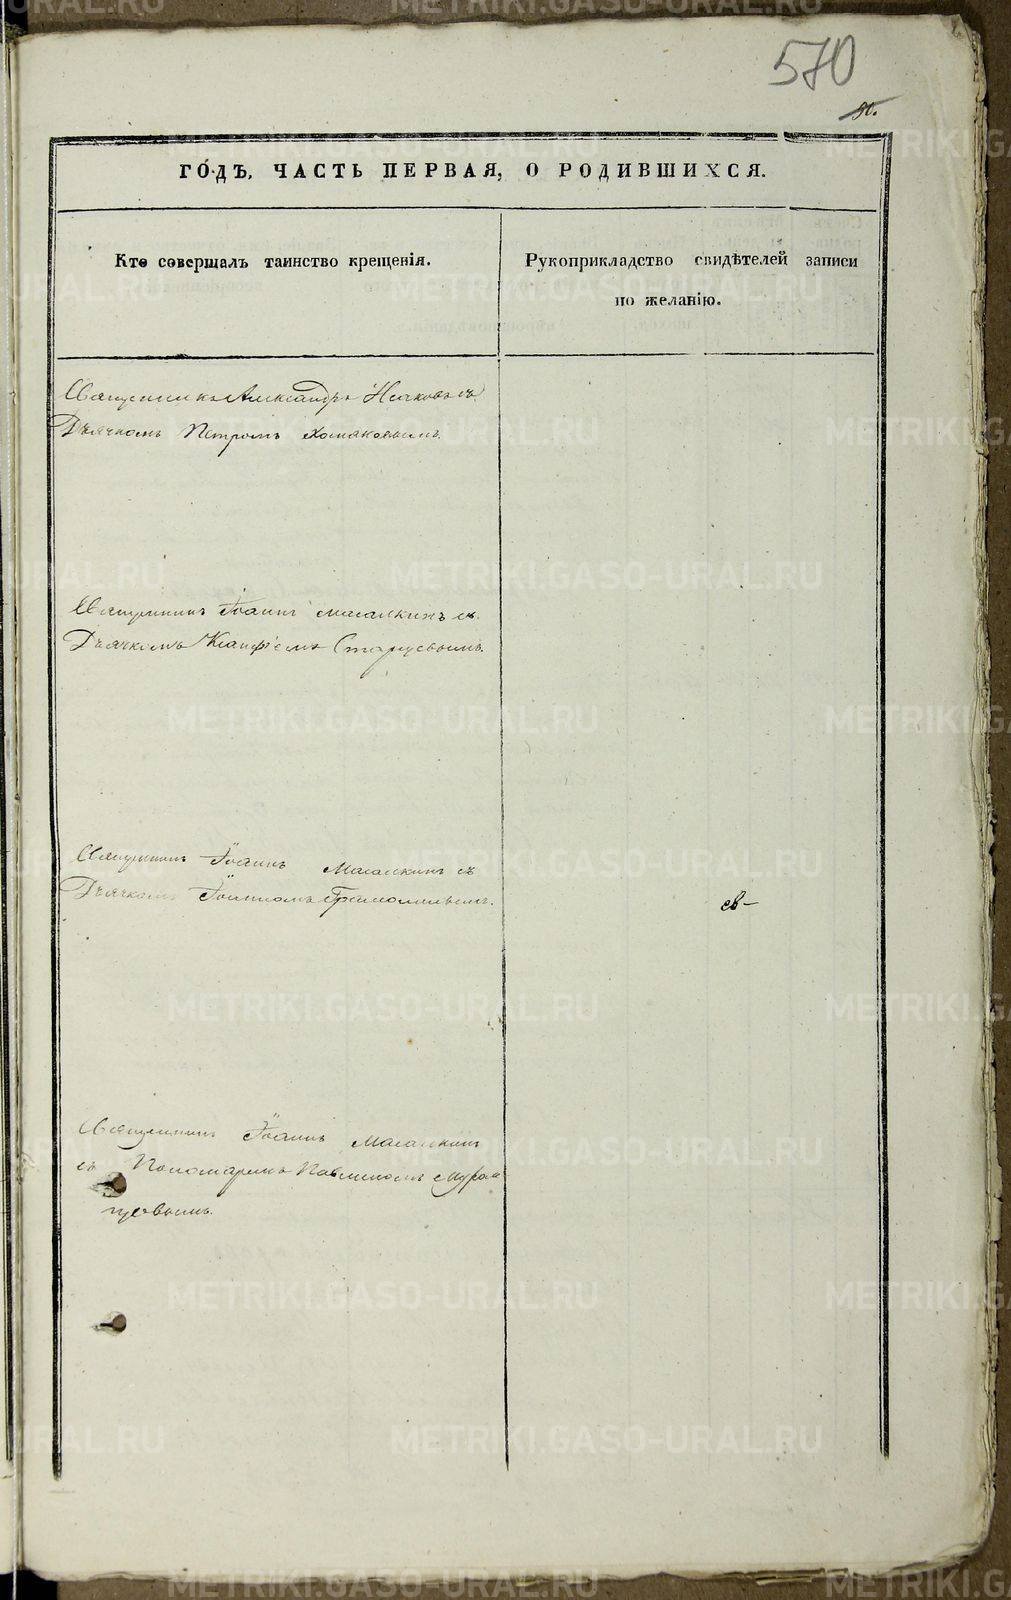 570
80.
ГОДЪ, ЧАСТЬ ПЕРВАЯ, О РОДИВШИХСЯ.
Кто совершалъ таинство крещенія.
Рукоприкладство свидѣтелей записи
по желанію.
Священникъ Александръ съ
Дьячкомъ Петромъ Хомяковымъ.
Священникъ Іоаннъ Масалкинъ съ
Дьячкомъ Старцовымъ.
Священникъ Іоаннъ Масалкинъ съ
Дьячкомъ Іоанномъ
св-
Священникъ Іоаннъ Масалкинъ
съ Пономаремъ Павлиномъ
METRIKI.GASO-URAL.RU